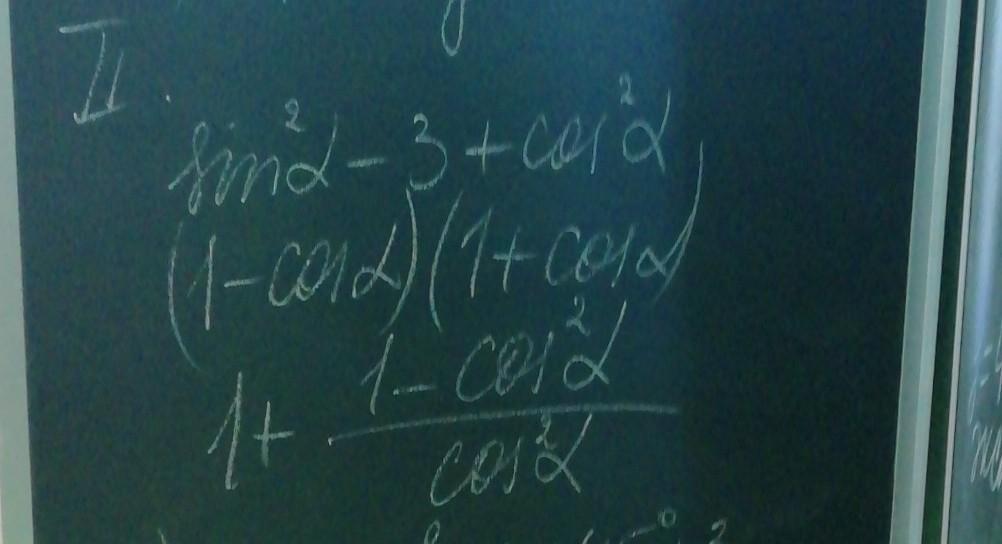 II.
sin²α - 3 + cos²α
(1 - cosα)(1 + cosα)
1 + (1 - cos²α)/cos²α